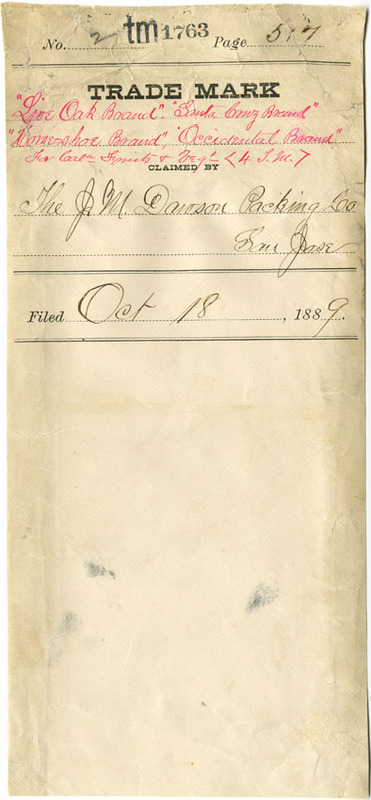 No. 2 tm 1763 Page 517
TRADE MARK
"Live Oak Brand". "Santa Cruz Brand"
"Horse-shoe Brand", "Occidental Brand"
For Calª Fruits & Vegˢ
CLAIMED BY
The J. M. Dawson Packing Co
San Jose
Filed Oct 18, 1889.